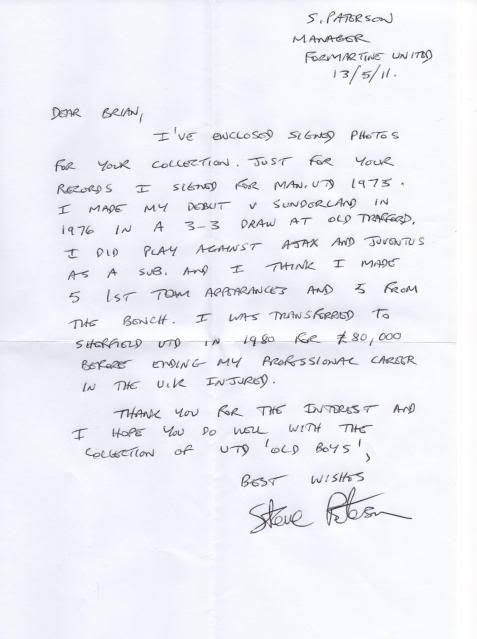 S. PATERSON
MANAGER
FORMARTINE UNITED
13/5/11.
DEAR BRIAN,
I'VE ENCLOSED SIGNED PHOTOS
FOR YOUR COLLECTION. JUST FOR YOUR
RECORDS I SIGNED FOR MAN. UTD 1975.
I MADE MY DEBUT V SUNDERLAND IN
1976 IN A 3-3 DRAW AT OLD TRAFFORD.
I DID PLAY AGAINST AJAX AND JUVENTUS
AS A SUB. AND I THINK I MADE
5 1ST TEAM APPEARANCES AND 5 FROM
THE BENCH. I WAS TRANSFERRED TO
SHEFFIELD UTD IN 1980 FOR £80,000
BEFORE ENDING MY PROFESSIONAL CAREER
IN THE U.K INJURED.
THANK YOU FOR THE INTEREST AND
I HOPE YOU DO WELL WITH THE
COLLECTION OF UTD 'OLD BOYS',
BEST WISHES
Steve Paterson